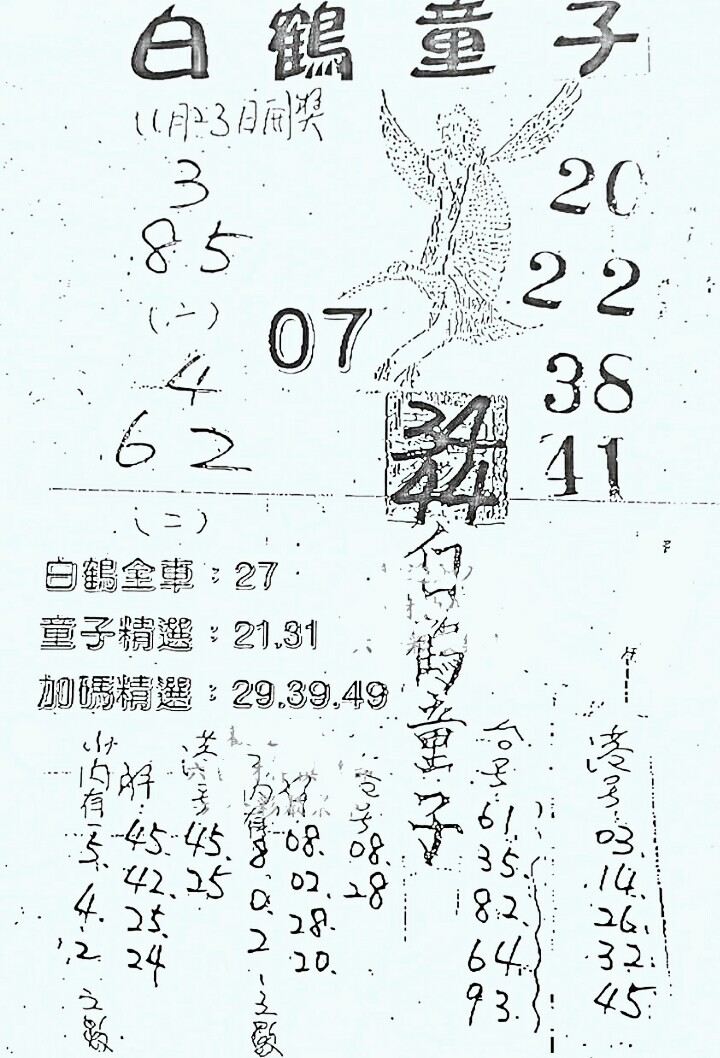 白鶴童子
11月23日開獎
3
85
(六)
4
62
(二)
07
20
22
38
41
34
44
白鶴全車：27
童子精選：21.31
加碼精選：29.39.49
白鶴童子
内有
5.
4.
2
之數
解
45.
42.
25.
24
港号
45.
25
内有
8
0.
2
之數
解
08.
02.
28.
20.
港号
08.
28
台号
61.
35.
82.
64.
93.
港号
03.
14.
26.
32.
45.